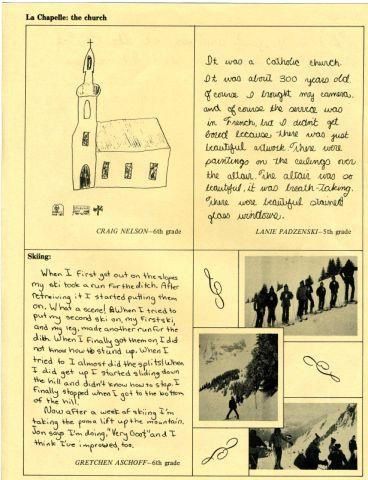 La Chapelle: the church
It was a Catholic church.
It was about 300 years old.
Of course I brought my camera,
and of course the service was
in French, but I didn't get
bored because there was just
beautiful artwork. There were
paintings on the ceilings over
the altair. The altair was so
beautiful, it was breath-taking.
There were beautiful stained
glass windows.
CRAIG NELSON—6th grade
LANIE PADZENSKI—5th grade
Skiing:
When I first got out on the slopes
my ski took a run for the ditch. After
retreiving it I started putting them
on. What a scene! When I tried to
put my second ski on, my first ski,
and my leg, made another run for the
dith. When I finally got them on, I did
not know how to stand up. When I
tried to I almost did the splits! When
I did get up I started sliding down
the hill and didn't know how to stop. I
finally stopped when I got to the bottom
of the hill.
Now after a week of skiing I'm
taking the poma lift up the mountain.
Jon says I'm doing, "Very Goot" and I
think I've improved, too.
GRETCHEN ASCHOFF—6th grade